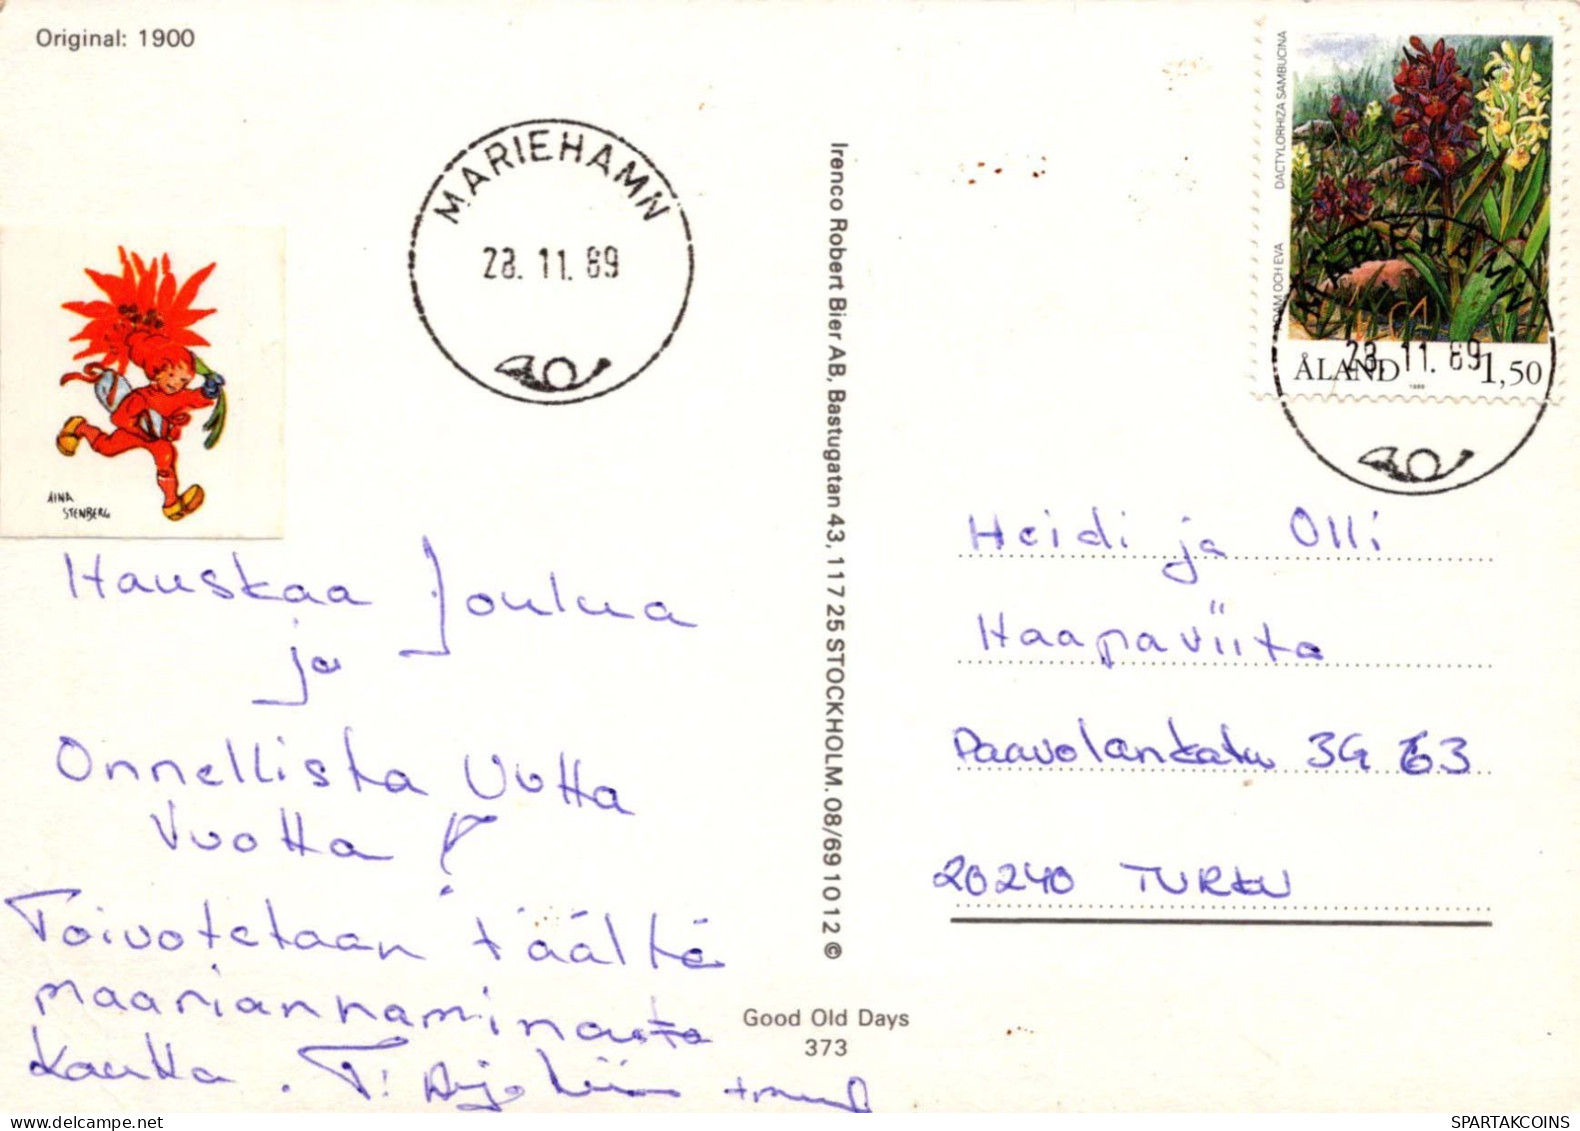 Original: 1900
MARIEHAMN
28. 11. 89
AINA
STENBERG
Hauskaa Joulua
ja
Onnellista Uutta
Vuotta !
Toivotetaan täältä
maariannaminasta
kautta . T:
Irenco Robert Bier AB, Bastugatan 43, 117 25 STOCKHOLM. 08/69 10 12 ©
Good Old Days
373
DACTYLORHIZA SAMBUCINA
ADAM OCH EVA
MARIEHAMN
28. 11. 89
ÅLAND 1,50
Heidi ja Olli
Haapaviita
Paavolankatu 3G 63
20240 TURKU
SPARTAKCOINS